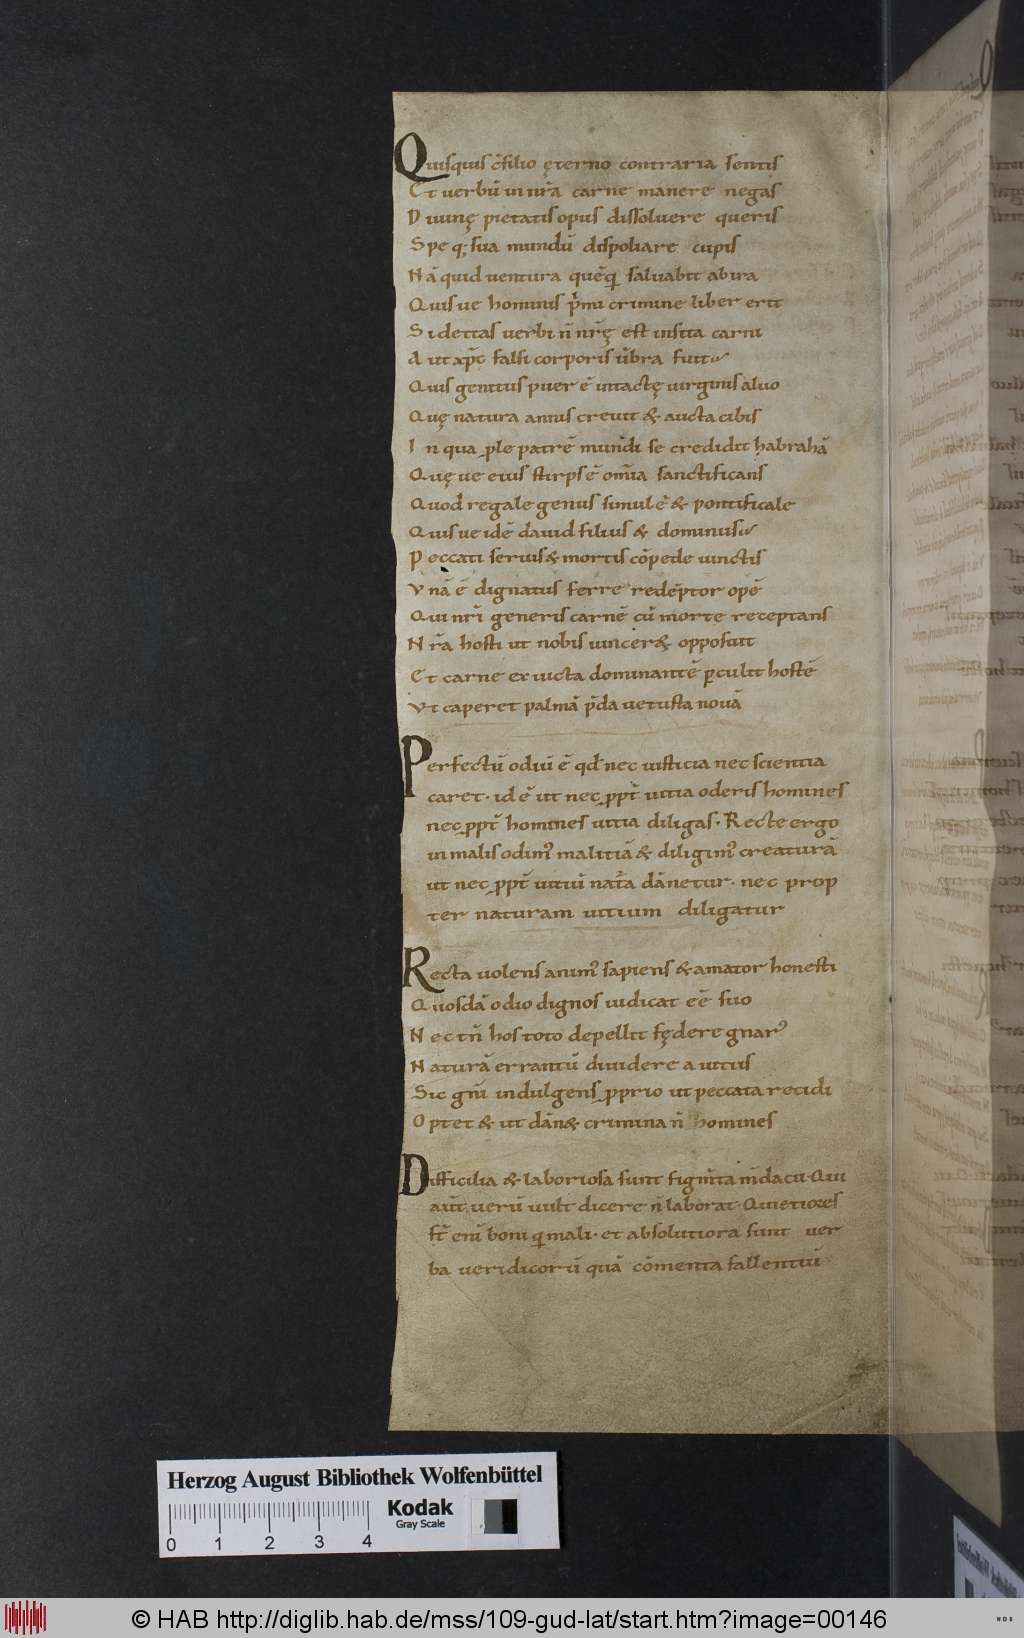 Quisquis c̄ filio ęterno contraria sentis
Et verbū in nr̄a carne manere negas
Diuinę pietatis opus dissoluere queris
Speq; sua mundū dispoliare cupis
Nā quid uentura quēq; saluabit ab ira
Quis ue hominis p̄mi crimine liber erit
Si deitas uerbi n̄ nr̄ę est insita carni
Aut xp̄c falsi corporis ūbra fuit
Quis genitus puer ē intactę uirginis aluo
Quę natura annis creuit & aucta cibis
In qua ꝓle patrē mundi se credidit habrahā
Quę ue eius stirps ē om̄ia sanctificans
Quod regale genus simul ē & pontificale
Quis ue idē dauid filius & dominus
Peccati seruis & mortis cōpede uinctis
Vnā ē dignatus ferre redēptor opē
Qui nr̄i generis carnē cū morte receptans
Nr̄a hosti ut nobis uincer& opposuit
Et carne ex uicta dominantē ꝑculit hostē
Vt caperet palmā p̄da uetusta nouā
Perfectū odiū ē qd̄ nec iusticia nec scientia
caret· id ē ut nec ꝓpt̄ uitia oderis homines
nec ꝓpt̄ homines uitia diligas· Recte ergo
in malis odim᾿ malitiā & diligim᾿ creaturā
ut nec ꝓpt̄ uitiū nat̄a dānetur· nec prop
ter naturam uitium diligatur
Recta uolens anim᾿ sapiens & amator honesti
Quosdā odio dignos iudicat eē suo
Nec tn̄ hos toto depellit fędere gnar᾿
Naturā errantū diuidere a uitiis
Sic gn̄i indulgens ꝓprio ut peccata recidi
Optet & ut dān& crimina n̄ homines
Difficilia & laboriosa sunt figm̄ta m̄daciī· Qui
aūt uerū uult dicere n̄ laborat· Quietiores
st̄ enī boni q̄ mali· et absolutiora sunt uer
ba ueridicorū quā cōmenta fallentiū
Herzog August Bibliothek Wolfenbüttel
Kodak
Gray Scale
0 1 2 3 4
© HAB http://diglib.hab.de/mss/109-gud-lat/start.htm?image=00146